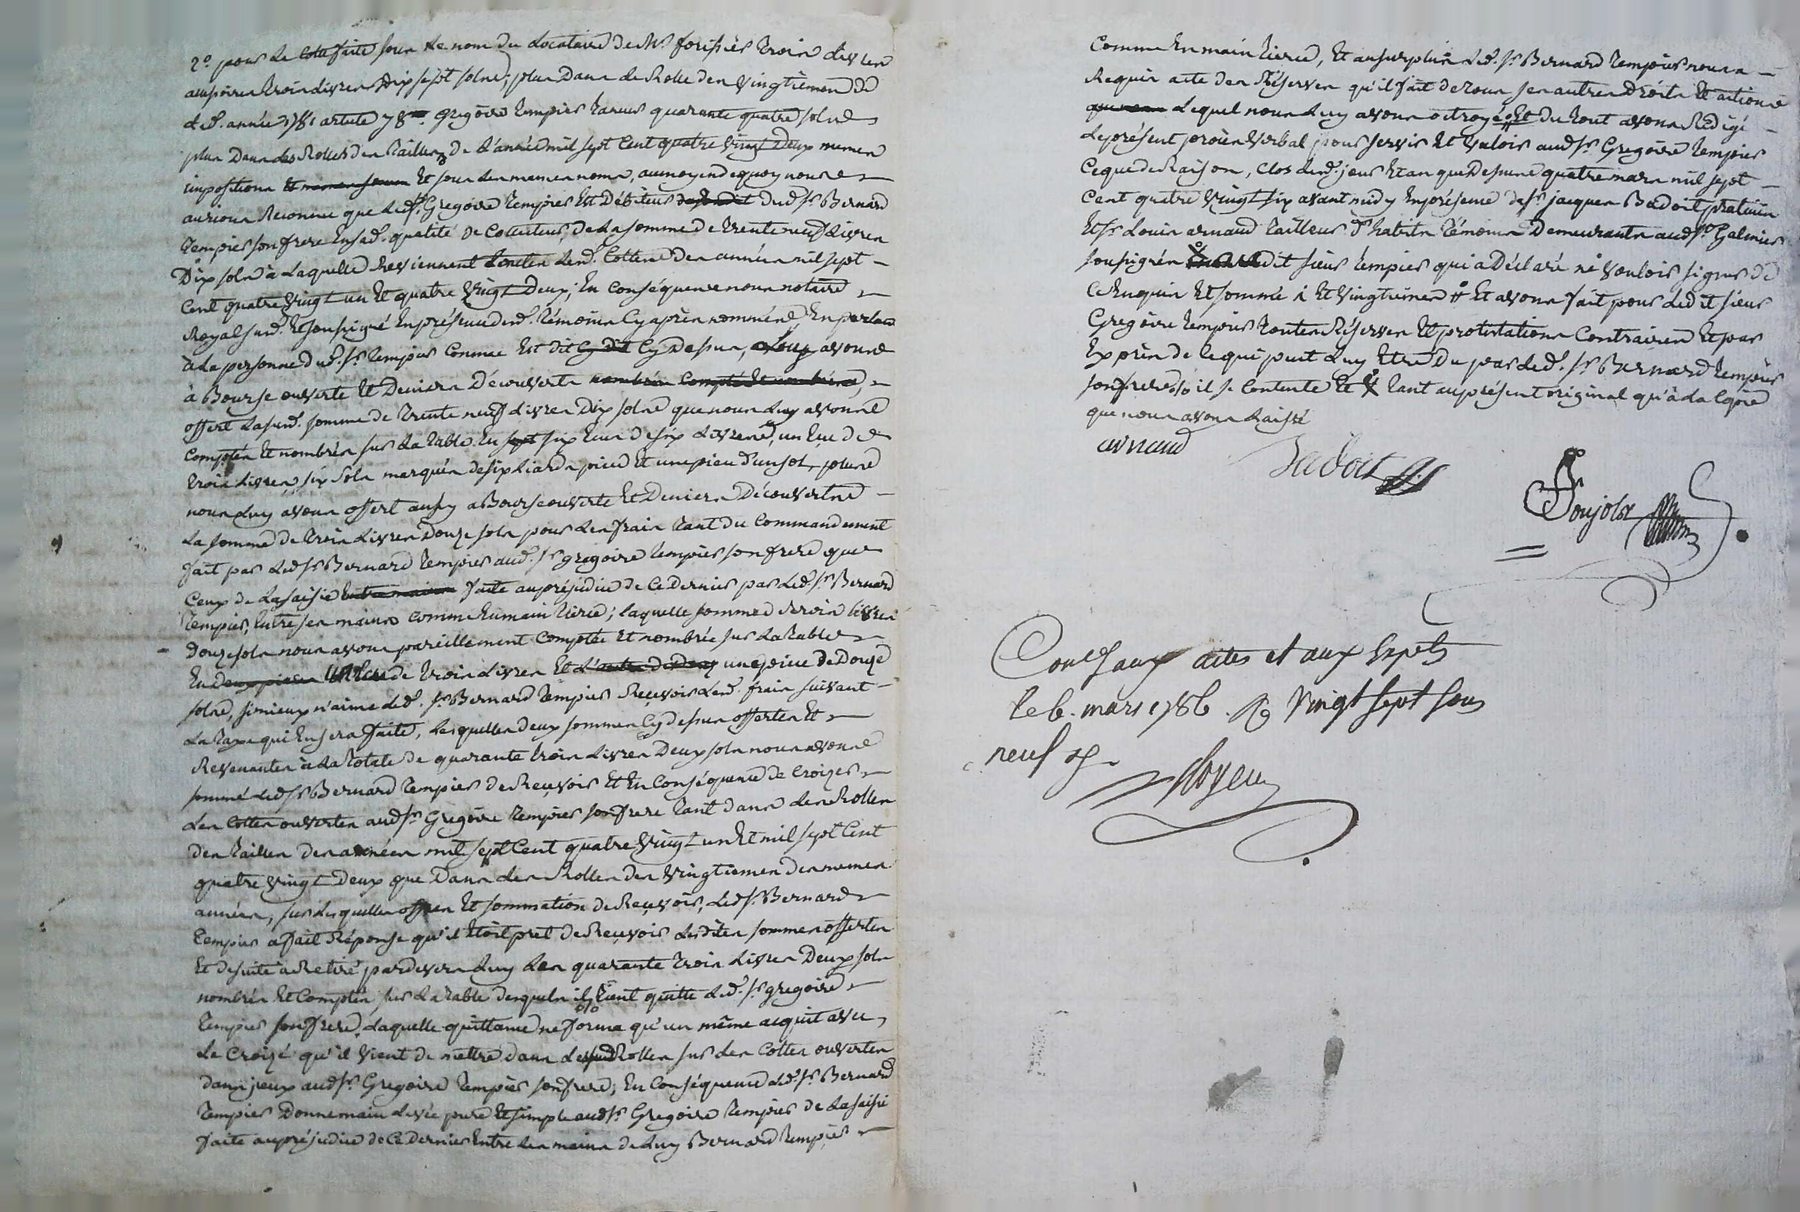 2.º pour la Cotte faite sous le nom du Locataire de Mr forisier trois livres
 trois livres dix sept sols; plus dans le Rolle des vingtiemes de
lad. année 1781 article 78 Gregoire tempier quarante quatre sols
plus dans les Rolles des tailles de L'année mil sept Cent quatre vingt Deux memes
impositions et memes sommes Et sous les memes noms, aumoyend equoy nous
aurions Reconnu que led. Sr Gregoire tempier Est Débiteur dud. Sr Bernard
tempier son frere En sad. qualité de Collecteur, de La somme de trente neuf Livres
Dix sols à Laquelle Reviennent toutes Lesd. Cottes des années mil sept
Cent quatre vingt un Et quatre vingt Deux; En Conséquence nous notaire
Royal susd. Et soussigné En présence des. témoins Cy après nommés En parlant
à La personne dud. Sr tempier Comme Est dit Cy Dessus, avons
à Bourse ouverte Et Deniers Découverts nombrés Comptés et nombrés,
offert La susd. somme de trente neuf Livres Dix sols que nous Luy avons
Comptés Et nombrés sur La table En sept six Ecus de six Livres, un Ecu de
trois Livres, six sols marqués de six Liards piece Et une piece d'un sol, plus
nous Luy avons offert aussy a Bourse ouverte Et Deniers Découverts
La somme de trois Livres Douze sols pour Les frais tant du Commandement
fait par Led. Sr Bernard tempier aud. Sr Gregoire tempier son frere que
Ceux de La saisie Entre mains faite au préjudice de Ce Dernier par Led. Sr Bernard
tempier, Entre ses mains Comme En main tierce; laquelle somme de trois livres
Douze sols nous avons pareillement Comptée Et nombrée sur La table
En deux pieces une de trois Livres Et L'autre de Douze une piece De Douze
sols, si mieux n'aime Led. Sr Bernard tempier Recevoir Lesd. frais suivant
La taxe qui En sera faite, Lesquelles deux sommes Cy dessus offertes Et
Revenantes à La totale de quarante trois Livres Deux sols nous avons
sommé Led. Sr Bernard tempier de Recevoir Et En Conséquence de Croizer
Les Cottes ouvertes aud. Sr Gregoire tempier son frere tant dans Les Rolles
des tailles des années mil sept Cent quatre vingt un Et mil sept Cent
quatre vingt Deux que Dans Les Rolles des vingtiemes des memes
années, sur Lesquelles offres Et sommation de Recevoir, Led. Sr Bernard
tempier a fait Réponse qu'il Etoit pret de Recevoir Lesdites sommes offertes
Et de suite à Retiré pardevers Luy Les quarante trois Livres Deux sols
nombrés Et Comptés sur La table desquels il tient quitte Led. Sr Gregoire
tempier son frere, Laquelle quittance ne forma qu'un même acquit avec
Le Croizé qu'il vient de mettre dans Lesd. Rolles sur Les Cottes ouvertes
dans jceux aud. Sr Gregoire tempier son frere; En Conséquence Led. Sr Bernard
tempier Donne main Levée pure Et simple aud. Sr Gregoire tempier de La saisie
faite au préjudice de Ce Dernier Entre Les mains de Luy Bernard tempier
Comme En main tierce, Et au surplus Led. Sr Bernard tempier nous a
Requis acte des Réserves qu'il fait de tous ses autres Droits Et actions
Lequel nous Luy avons octroyé Et du tout avons Rédigé
Le présent procès verbal pour servir Et valoir aud. Sr Gregoire tempier
Ce que de Raison, Clos Lesd. jour Et an que Dessus quatre mars mil sept
Cent quatre vingt six avant midy En présence de Sr jacques Badoit praticien
Et Sr Louis arnaud tailleur d'habits témoins Demeurants aud. St Galmier
soussignés ledit sieur tempier qui a Déclaré ne vouloir signer de
Ce Enquis Et sommé Et vingtiemes Et avons fait pour Ledit sieur
Gregoire tempier toutes Réserves Et protestations Contraires Et par
Exprès de Ce qui peut Luy Etre Du par Led. Sr Bernard tempier
son frere il se Contente Et tant au présent original qu'à La Copie
que nous avons Laissé
arnaud
Badoit
Ponjolas
Conlé aux actes et aux Expts
le 6. mars 1786. R vingt sept sous
neuf d.